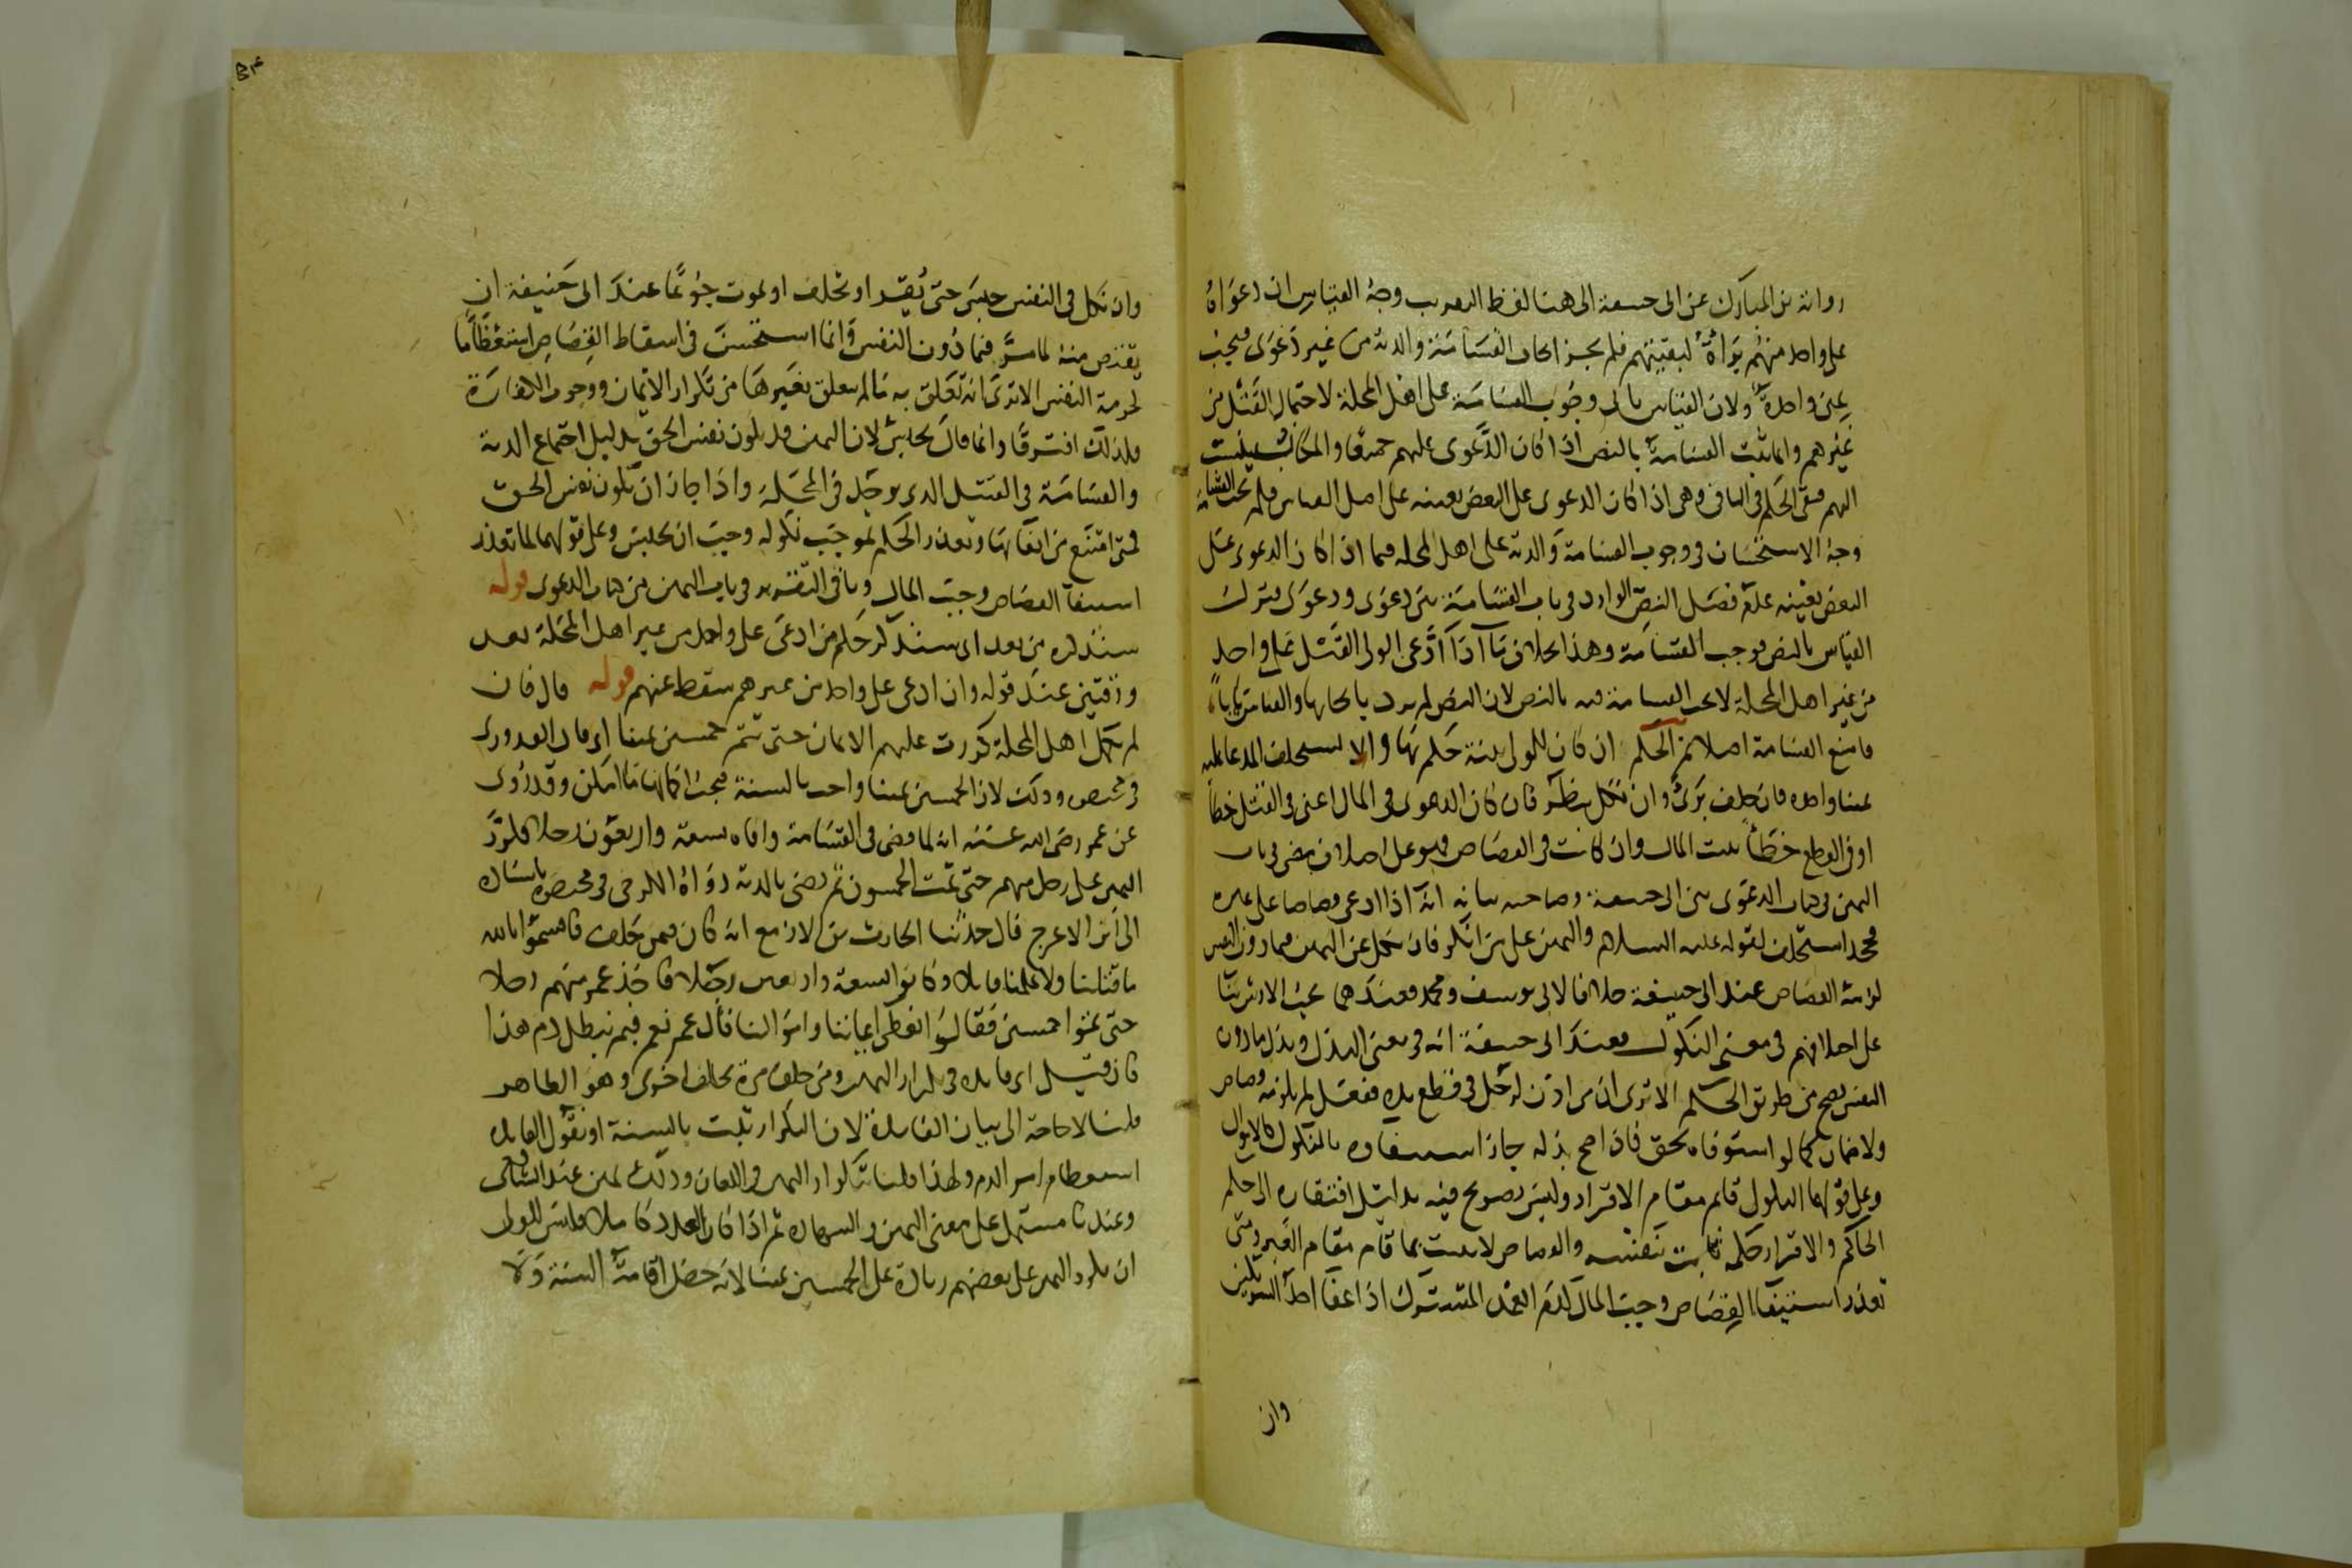 رواية بن المبارك عن ابى حنيفة الى هنا لفظ التقريب وجه القياس ان دعواه
على واحد منهم براءة لبقيتهم فلم يجز ايجاب القسامة والدية من غير دعوى فيجب
يمين واحدة ولان القياس يابى وجوب القسامة على اهل المحلة لاحتمال القتل من
غيرهم وانما ثبت القسامة بالنص اذا كان الدعوى عليهم جميعا والمكان ينسب
اليهم فبقى الحكم فى الباقى وهى اذا كان الدعوى على البعض بعينه على اصل القياس فلم تجب القسامة
وجه الاستحسان فى وجوب القسامة والدية على اهل المحلة فيما اذا كان الدعوى على
البعض بعينه عدم فصل النص الوارد فى باب القسامة بين دعوى ودعوى فترك
القياس بالنص فوجب القسامة وهذا بخلاف ما اذا ادعى الولى القتل على واحد
من غير اهل المحلة لا تجب القسامة فيه بالنص لان النص لم يرد بايجابها والقياس ياباه
فامتنع القسامة اصلا ثم الحكم ان كان للولى بينة حكم بها والا يستحلف المدعا عليه
يمينا واحدة فان حلف برئ وان نكل ينظر فان كان الدعوى فى المال اعنى فى القتل خطأ
او فى القطع خطأ يثبت المال وان كانت فى القصاص فهو على اختلاف مضى فى باب
اليمين فى كتاب الدعوى بين ابى حنيفة وصاحبيه بيانه انه اذا ادعى قصاصا على غيره
فجحد استحلف لقوله عليه السلام واليمين على من انكر فان نكل عن اليمين فيما دون النفس
لزمه القصاص عند ابى حنيفة خلافا لابى يوسف ومحمد فعندهما يجب الارش بناء
على اختلافهم فى معنى النكول فعند ابى حنيفة انه فى معنى البذل وبذل ما دون
النفس يصح من طريق الحكم الا ترى ان من اذن لرجل فى قطع يده ففعل لم يلزمه قصاص
ولا ضمان كما لو استوفاه بحق فاذا صح بذله جاز استيفاوه بالنكول كالاموال
وعلى قولهما النكول قايم مقام الاقرار وليس بصريح فيه بدليل افتقاره الى حكم
الحاكم والاقرار حكمه ثابت بنفسه والقصاص لا يثبت بما قام مقام الغير ومتى
تعذر استيفا القصاص وجب المال كدم العمد المشترك اذا عفا احد الشريكين
وان
وان نكل فى النفس حبس حتى يقر او يحلف او يموت جوعا عند ابى حنيفة ان
يقتص منه لما مر فيما دون النفس وانما استحسن فى اسقاط القصاص استعظاما
لحرمة النفس الا ترى انه تعلق به ما لم يتعلق بغيرها من تكرار الايمان ووجوب الكفارة
فلذلك افترقا وانما قال يحبس لان اليمين قد يكون نفس الحق بدليل اجتماع الدية
والقسامة فى القتيل الذى يوجد فى المحلة واذا جاز ان تكون نفس الحق
فمتى امتنع من ايفائها وتعذر الحكم بموجب نكوله وجب ان يحبس وعلى قولهما لما تعذر
استيفا القصاص وجب المال وباقى التقرير فى باب اليمين من كتاب الدعوى قوله
سنذكره من بعد اى سنذكر حكم من ادعى على واحد من غير اهل المحلة بعد
ورقتين عند قوله وان ادعى على واحد من غيرهم سقط عنهم قوله قال فان
لم يكمل اهل المحلة كررت عليهم الايمان حتى تتم خمسين يمينا اى قال القدورى
فى مختصره وذلك لان الخمسين يمينا واجب بالسنة فيجب اكمالها ما امكن وقد روى
عن عمر رضى الله عنه انه لما قضى فى القسامة وافاه تسعة واربعون رجلا فكرر
اليمين على رجل منهم حتى تمت الخمسون ثم قضى بالدية رواه الكرخى فى مختصره باسناده
الى الاعرج قال حدثنا الحارث بن الازمع انه كان فيمن حلف فاقسموا بالله
ما قتلنا ولا علمنا قاتلا وكانوا تسعة واربعين رجلا فاخذ عمر منهم رجلا
حتى تموا خمسين فقالوا انعطى ايماننا واموالنا فقال عمر نعم فبم نبطل دم هذا
فان قيل اى فايدة فى تكرار اليمين ومن حلف مرة يحلف اخرى وهو الظاهر
قلنا لا حاجة الى بيان الفايدة لان التكرار يثبت بالسنة او نقول الفايدة
استعظام امر الدم ولهذا قلنا بتكرار اليمين فى اللعان وذلك يمين عند الشافعى
وعندنا مشتمل على معنى اليمين والشهادة ثم اذا كان العدد كاملا فليس للولى
ان يكرر اليمين على بعضهم زيادة على الخمسين يمينا لانه حصل اقامة السنة ولا